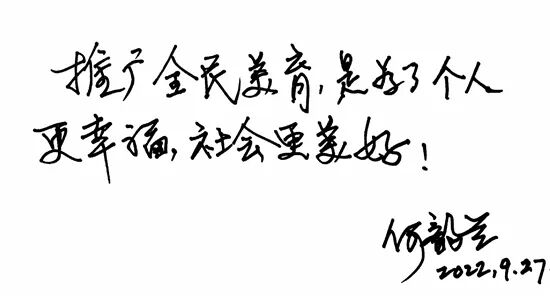 推广全民美育,是为了个人
更幸福,社会更美好!
何
2022.9.27